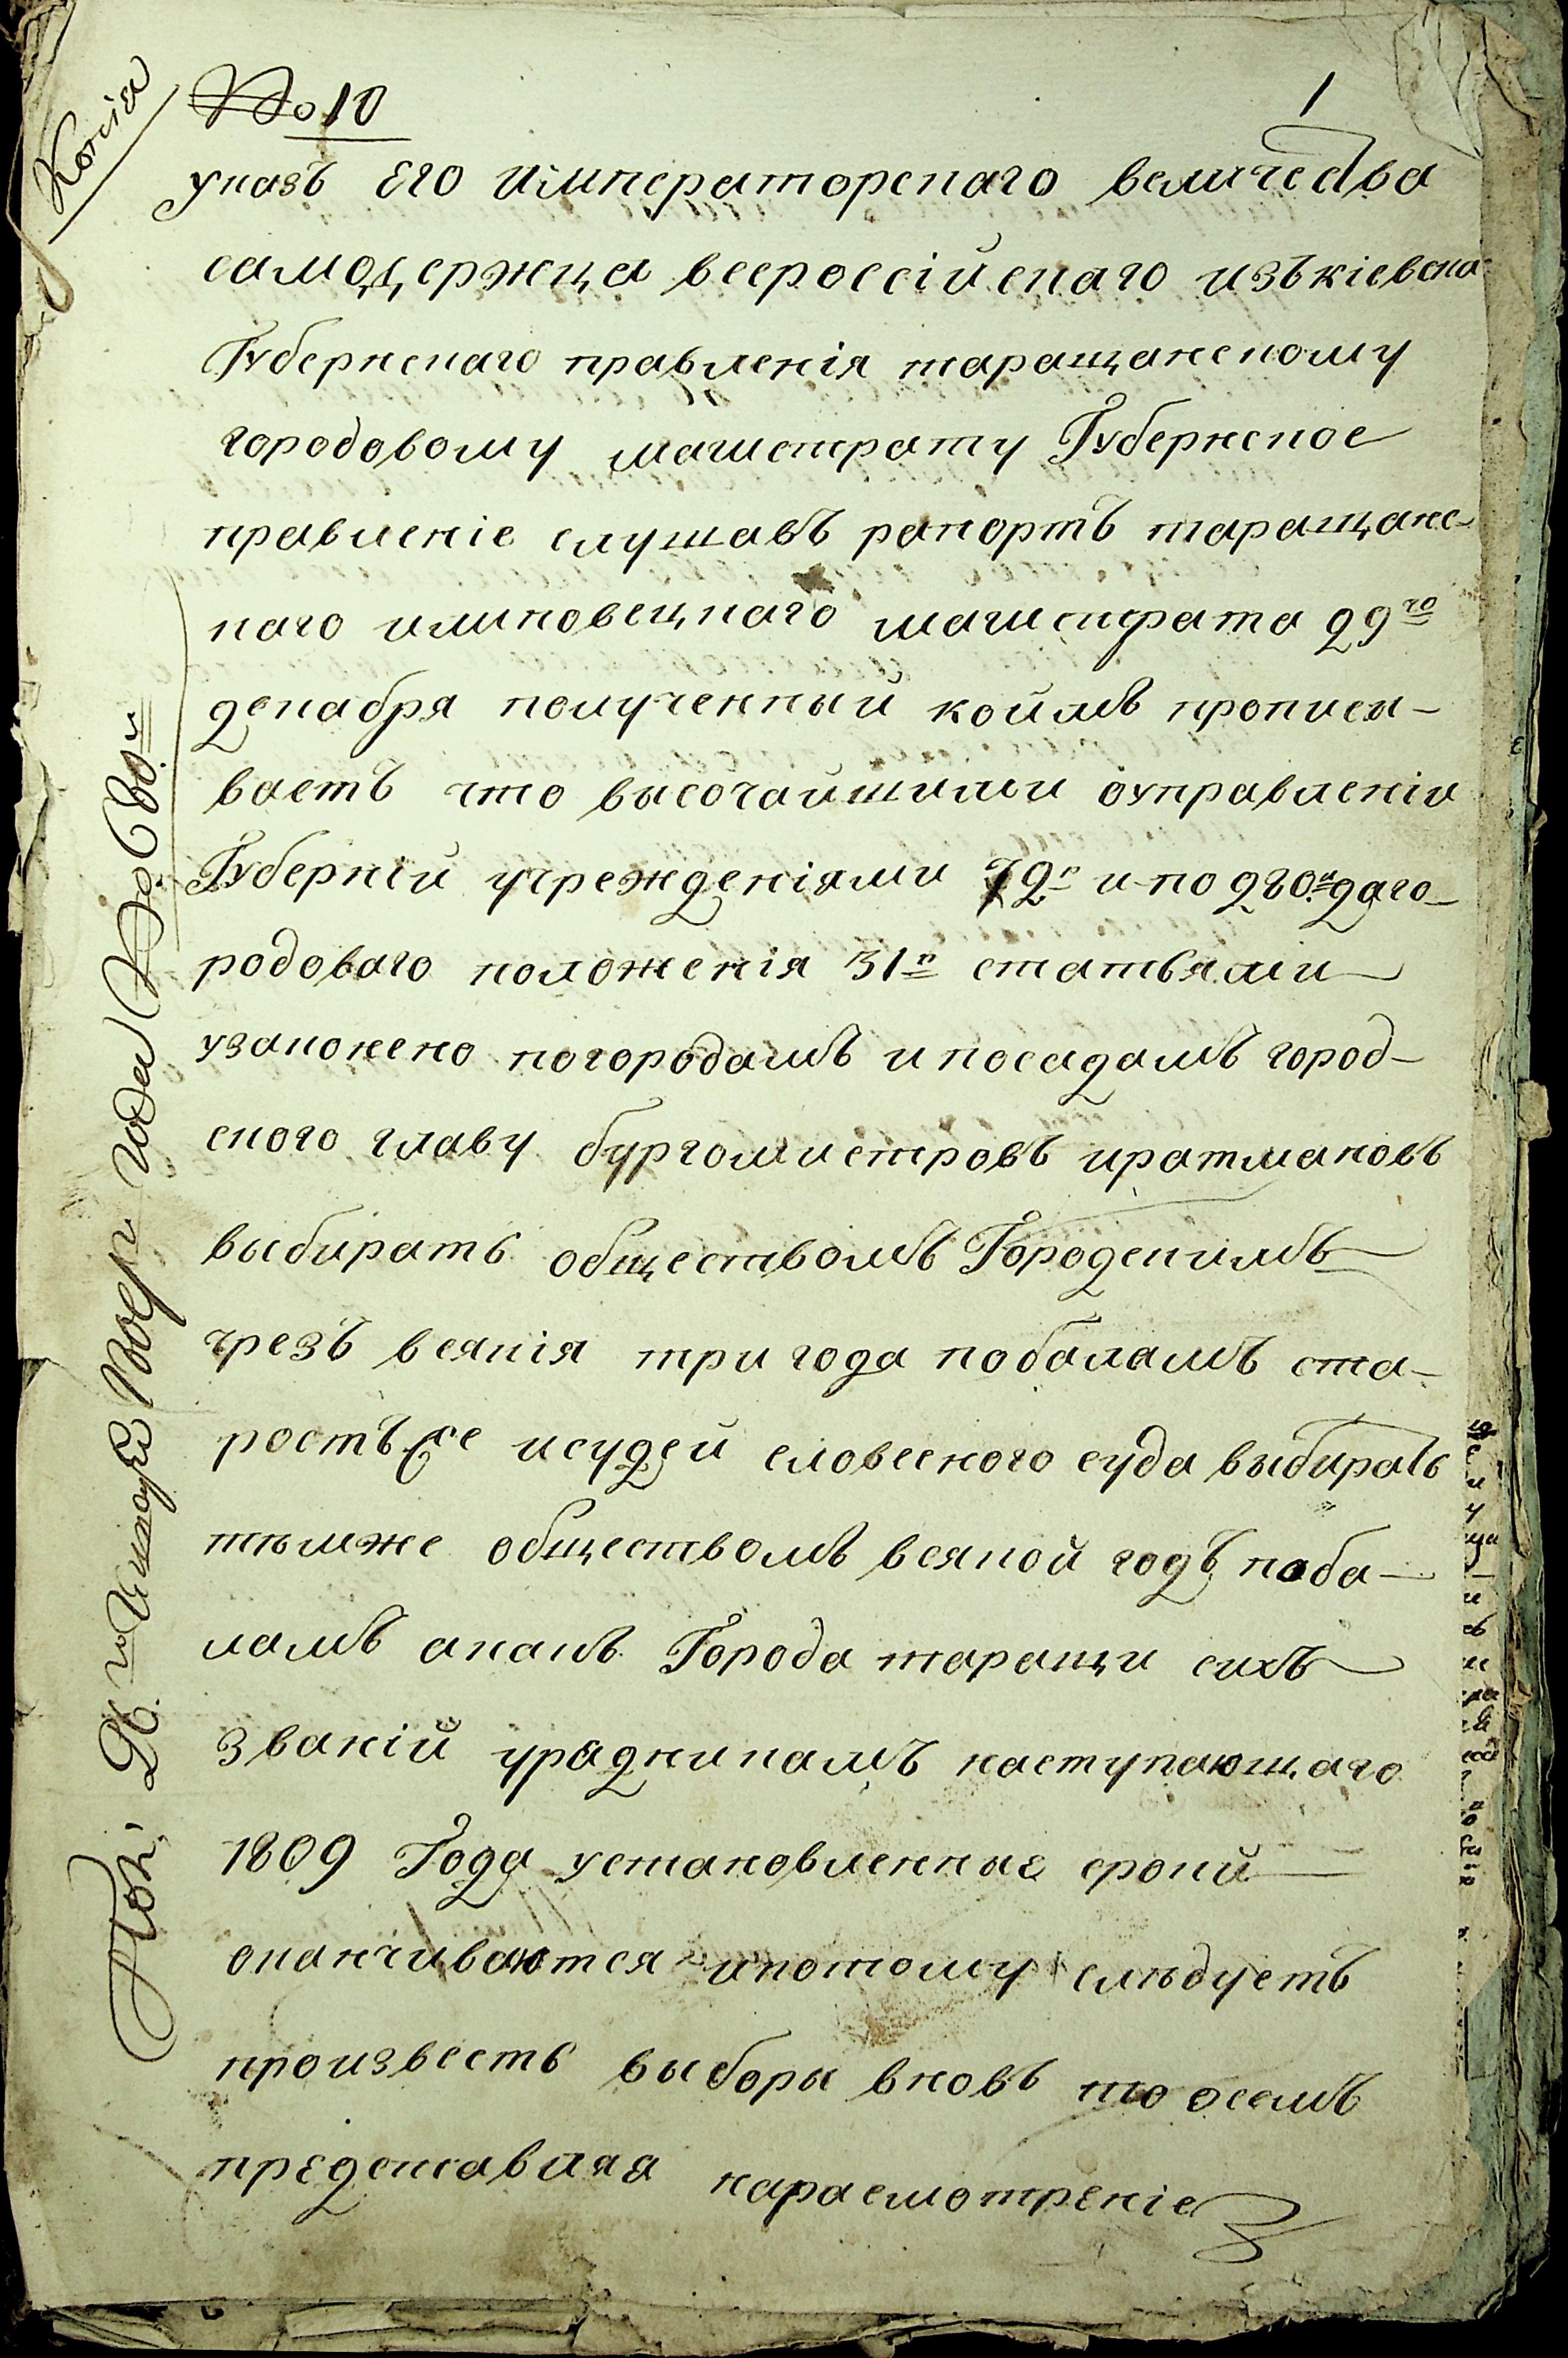 Копія
№ 10
1
указъ его императорскаго величества
самодержца всероссійскаго изъ кіевска
Губернскаго правленія таращанскому
городовому магистрату Губернское
правленіе слушавъ рапортъ таращанс-
каго илиповецкаго магистрата 29го
декабря полученный коимъ прописы-
ваетъ что высочайшими оуправленіи
Губерній учрежденіями 72й и по
родоваго положенія 31й статьями
узаконено погородамъ и посадамъ город-
ского главу бургомистровъ иратмановъ
выбирать обществомъ Городскимъ
чрезъ всякія три года побаламъ ста-
ростъ исудей словесного суда выбирать
тѣмже обществомъ всякой годъ поба-
ламъ акакъ Города таращи сихъ
званій урядникамъ наступающаго
1809 Года установленные сроки
оканчиваются ипотому слѣдуетъ
произвесть выборы вновь то осемъ
представляя наразсмотреніе
года № 680й